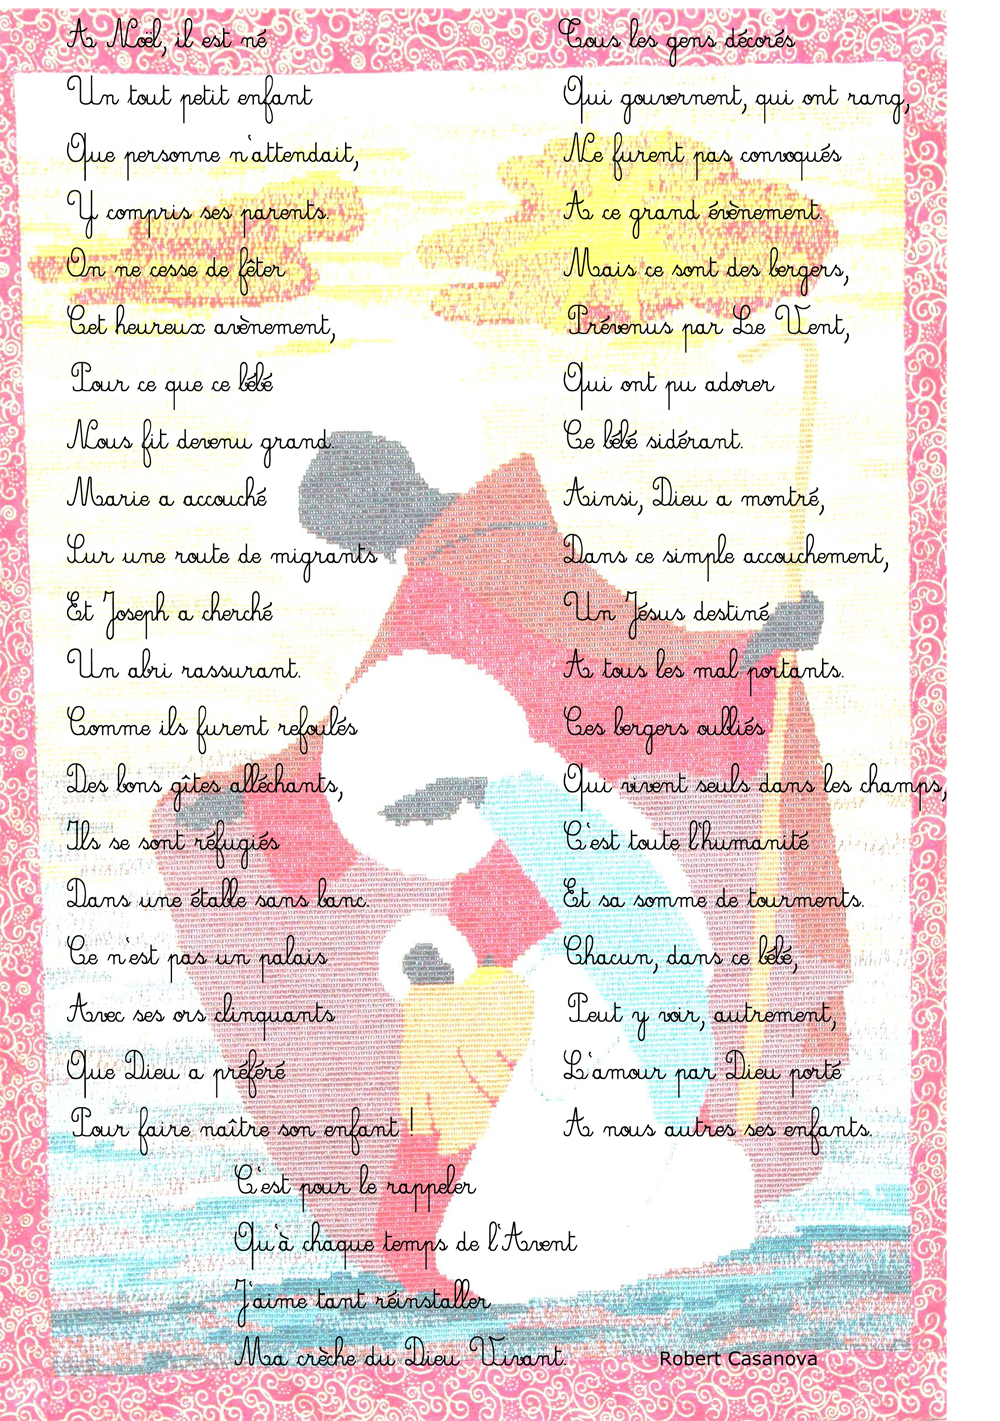 A Noël, il est né
Un tout petit enfant
Que personne n'attendait,
Y compris ses parents.
On ne cesse de fêter
Cet heureux avènement,
Pour ce que ce bébé
Nous fit devenu grand.
Marie a accouché
Sur une route de migrants
Et Joseph a cherché
Un abri rassurant.
Comme ils furent refoulés
Des bons gîtes alléchants,
Ils se sont réfugiés
Dans une étable sans banc.
Ce n'est pas un palais
Avec ses ors clinquants
Que Dieu a préféré
Pour faire naître son enfant !
Tous les gens décorés
Qui gouvernent, qui ont rang,
Ne furent pas convoqués
A ce grand évènement.
Mais ce sont des bergers,
Prévenus par Le Vent,
Qui ont pu adorer
Ce bébé sidérant.
Ainsi, Dieu a montré,
Dans ce simple accouchement,
Un Jésus destiné
A tous les mal portants.
Ces bergers oubliés
Qui vivent seuls dans les champs,
C'est toute l'humanité
Et sa somme de tourments.
Chacun, dans ce bébé,
Peut y voir, autrement,
L'amour par Dieu porté
A nous autres ses enfants.
C'est pour le rappeler
Qu'à chaque temps de l'Avent
J'aime tant réinstaller
Ma crèche du Dieu Vivant.
Robert Casanova